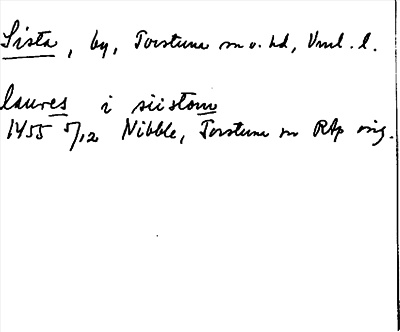 Sista, by, Torstuna sn o. hd, Vml. l.
laures i siistom
1455 5/12 Nibble, Torstuna sn RAp orig.